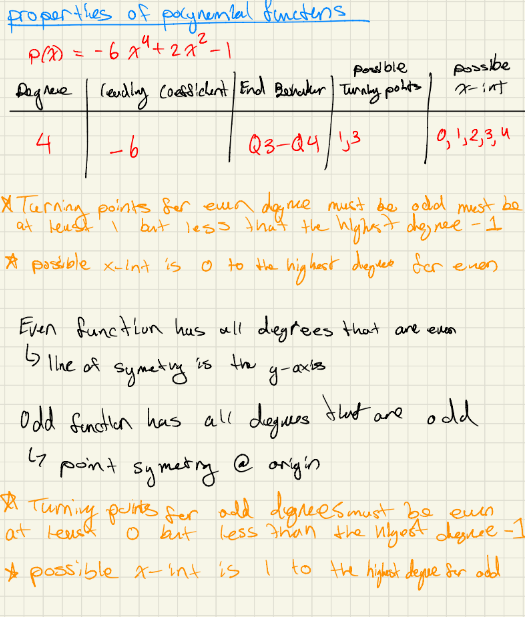 properties of polynomial functions
P(x) = -6x⁴ + 2x² - 1
Degree | Leading Coefficient | End Behavior | possible Turning points | possible x-int
4 | -6 | Q3-Q4 | 1,3 | 0,1,2,3,4
* Turning points for even degree must be odd must be
at least 1 but less that the highest degree -1
* possible x-int is 0 to the highest degree for even
Even function has all degrees that are even
↳ line of symetry is the y-axis
Odd function has all degrees that are odd
↳ point symetry @ origin
* Turning points for odd degrees must be even
at least 0 but less than the highest degree -1
* possible x-int is 1 to the highest degree for odd